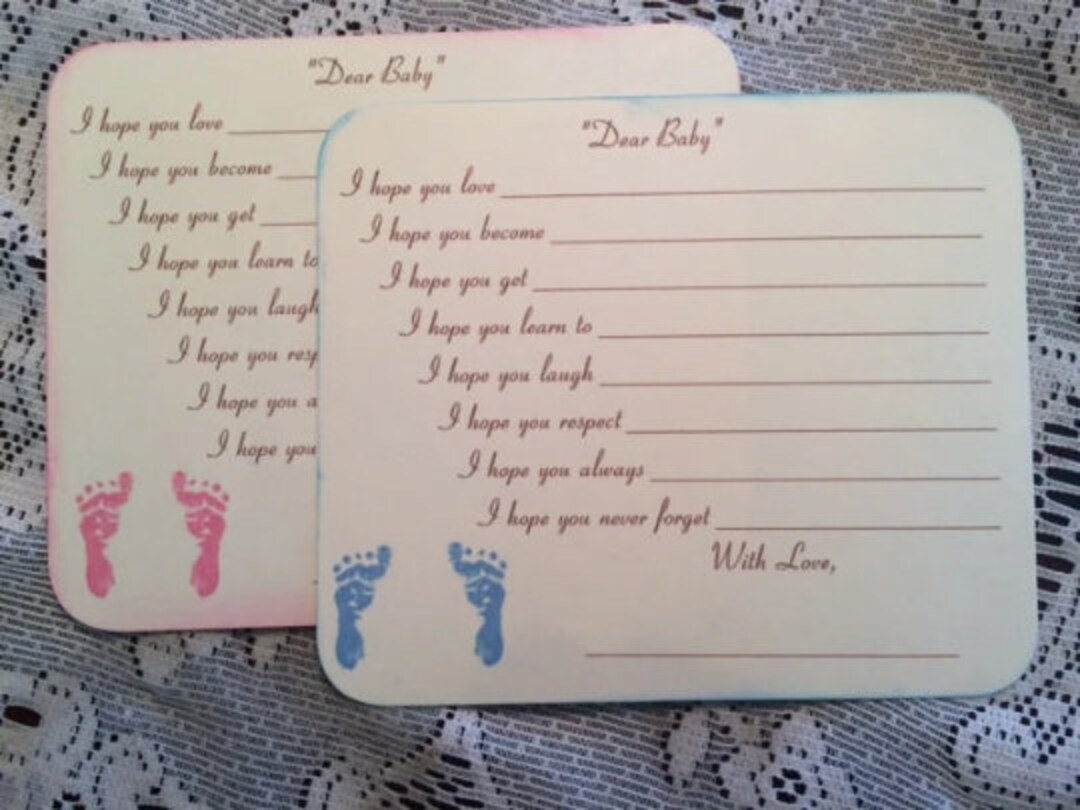 "Dear Baby"
I hope you love
I hope you become
I hope you get
I hope you learn to
I hope you laugh
I hope you resp
I hope you a
I hope you
"Dear Baby"
I hope you love
I hope you become
I hope you get
I hope you learn to
I hope you laugh
I hope you respect
I hope you always
I hope you never forget
With Love,